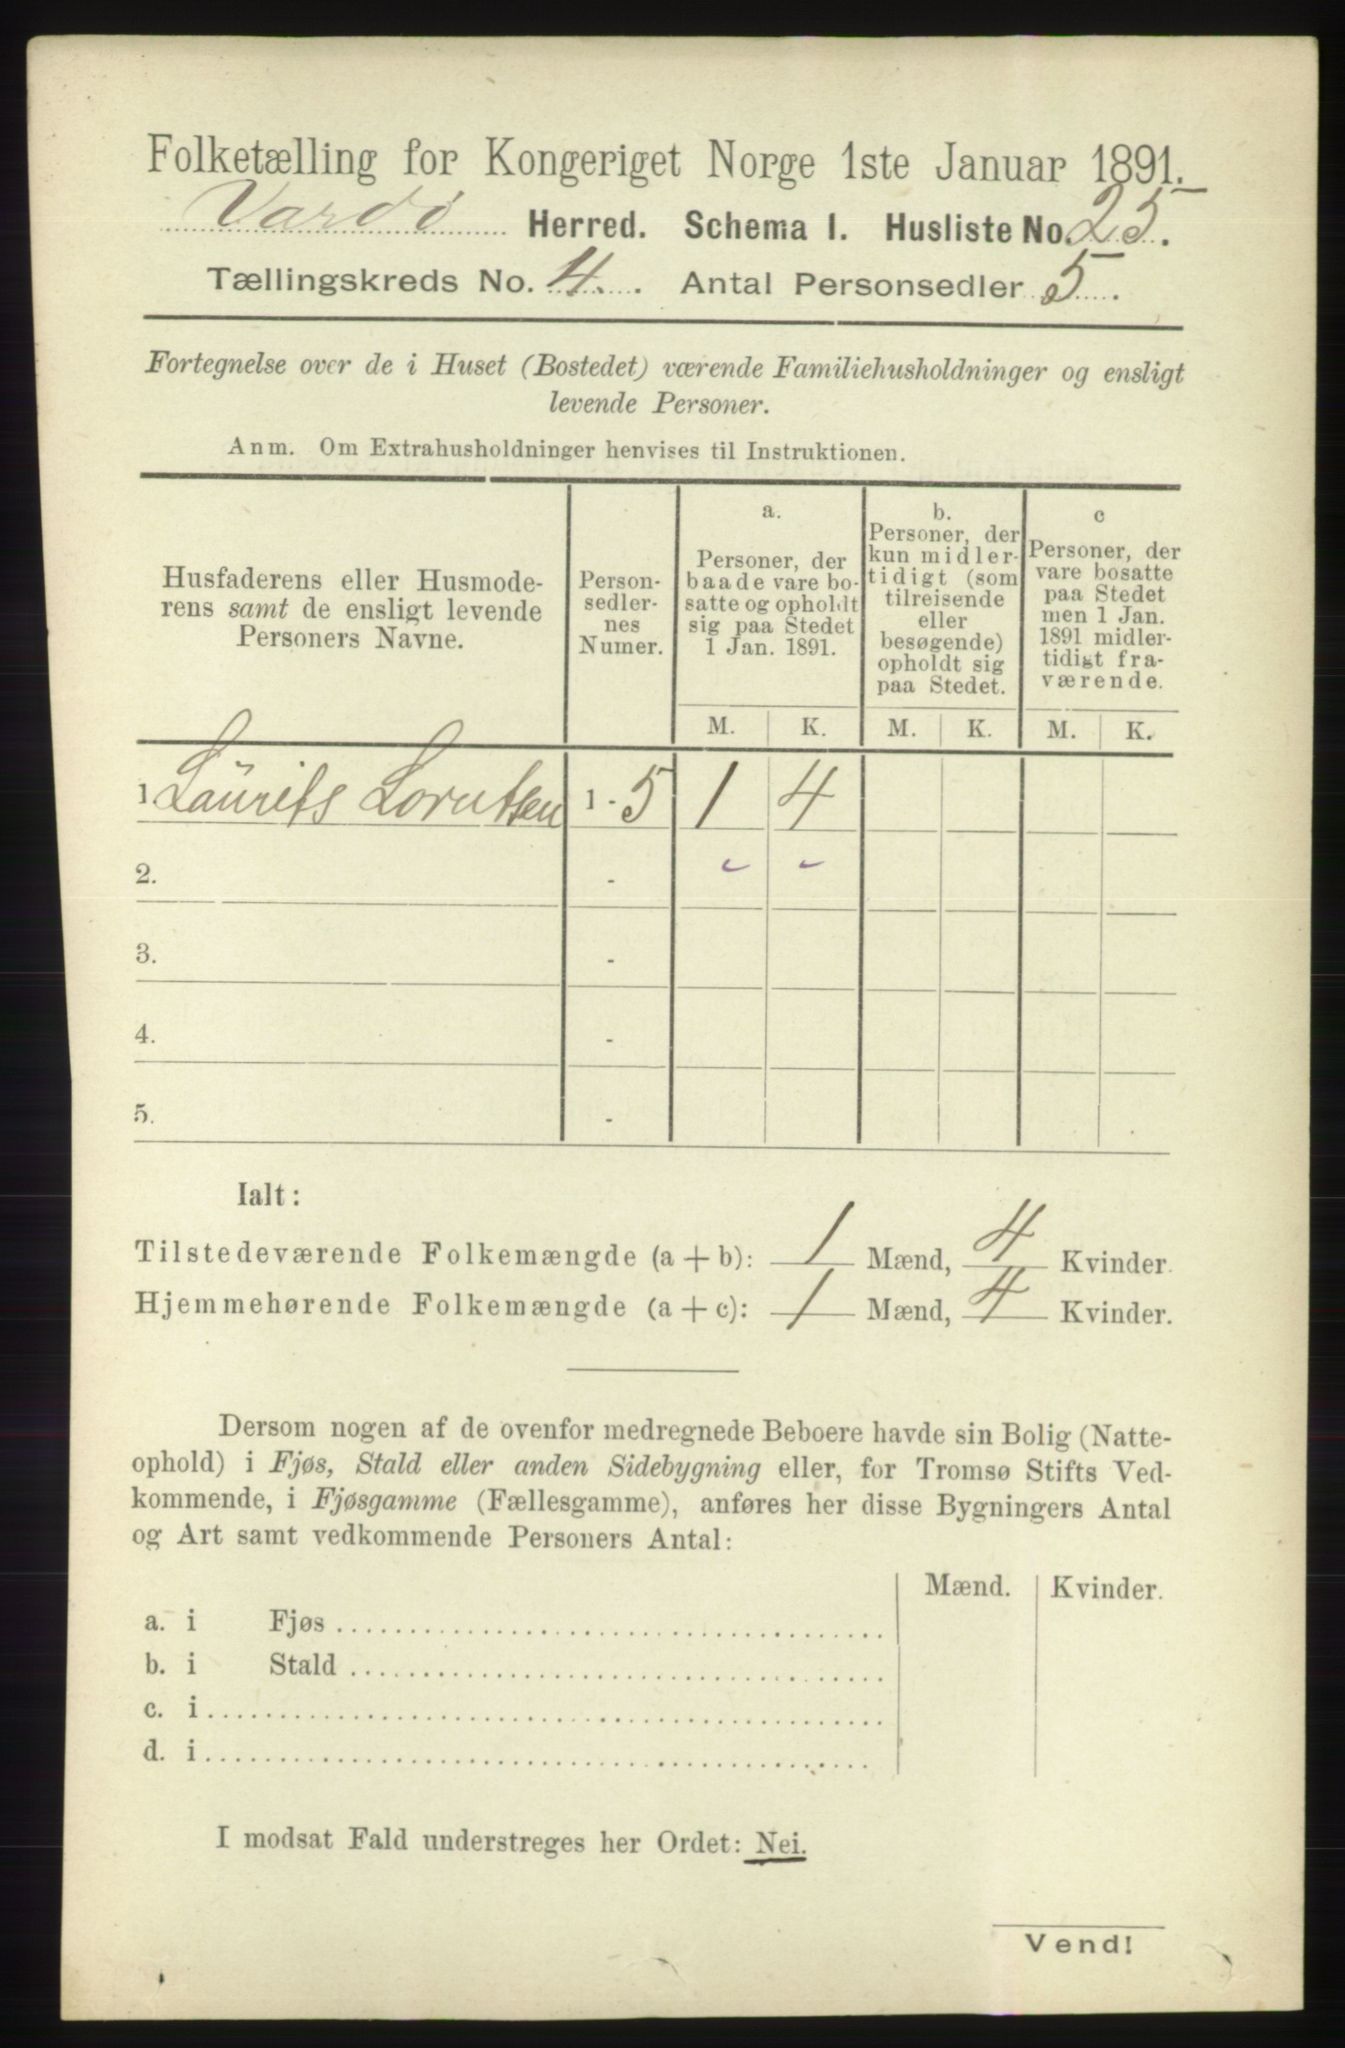 Folketælling for Kongeriget Norge 1ste Januar 1891.
Vardø Herred. Schema I. Husliste No. 25.
Tællingskreds No. 4. Antal Personsedler 5.
Fortegnelse over de i Huset (Bostedet) værende Familiehusholdninger og ensligt
levende Personer.
Anm. Om Extrahusholdninger henvises til Instruktionen.
Husfaderens eller Husmode-
rens samt de ensligt levende
Personers Navne.
Person-
sedler-
nes
Numer.
a.
Personer, der
baade vare bo-
satte og opholdt
sig paa Stedet
1 Jan. 1891.
b.
Personer, der
kun midler-
tidigt (som
tilreisende
eller
besøgende)
opholdt sig
paa Stedet.
c
Personer, der
vare bosatte
paa Stedet
men 1 Jan.
1891 midler-
tidigt fra-
værende.
M. K. M. K. M. K.
1 Laŭrits Lorntsen 1-5 1 4
2. -
3. -
4. -
5. -
Ialt:
Tilstedeværende Folkemængde (a + b): 1 Mænd, 4 Kvinder.
Hjemmehørende Folkemængde (a + c): 1 Mænd, 4 Kvinder.
Dersom nogen af de ovenfor medregnede Beboere havde sin Bolig (Natte-
ophold) i Fjøs, Stald eller anden Sidebygning eller, for Tromsø Stifts Ved-
kommende, i Fjøsgamme (Fællesgamme), anføres her disse Bygningers Antal
og Art samt vedkommende Personers Antal:
Mænd. Kvinder.
a. i Fjøs
b. i Stald
c. i
d. i
I modsat Fald understreges her Ordet: Nei.
Vend!